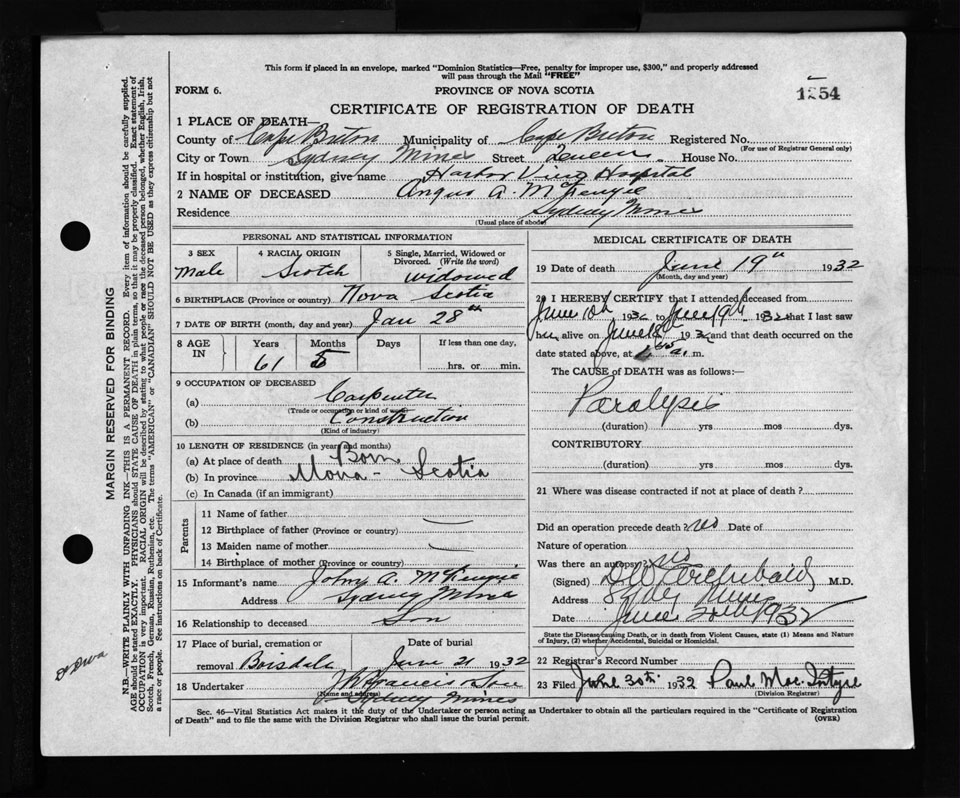 This form if placed in an envelope, marked "Dominion Statistics—Free, penalty for improper use, $300," and properly addressed
will pass through the Mail "FREE"
FORM 6.
PROVINCE OF NOVA SCOTIA
1254
CERTIFICATE OF REGISTRATION OF DEATH
1 PLACE OF DEATH—
County of Cape Breton Municipality of Cape Breton Registered No.
(For use of Registrar General only)
City or Town Sydney Mines Street Queen House No.
If in hospital or institution, give name Harbor View Hospital
2 NAME OF DECEASED Angus A. McKenzie
Residence Sydney Mines
(Usual place of abode)
PERSONAL AND STATISTICAL INFORMATION
3 SEX
Male
4 RACIAL ORIGIN
Scotch
5 Single, Married, Widowed or
Divorced. (Write the word)
Widowed
6 BIRTHPLACE (Province or country) Nova Scotia
7 DATE OF BIRTH (month, day and year) Jan 28th
8 AGE
IN
Years
61
Months
5
Days
If less than one day,
hrs. or min.
9 OCCUPATION OF DECEASED
(a) Carpenter
(Trade or occupation or kind of work)
(b) Construction
(Kind of industry)
10 LENGTH OF RESIDENCE (in years and months)
(a) At place of death Born
(b) In province Nova - Scotia
(c) In Canada (if an immigrant)
Parents
11 Name of father
12 Birthplace of father (Province or country)
13 Maiden name of mother
14 Birthplace of mother (Province or country)
15 Informant's name John A. McKenzie
Address Sydney Mines
16 Relationship to deceased Son
17 Place of burial, cremation or
removal Boisdale
Date of burial
June 21 1932
18 Undertaker
(Name and address)
Sydney Mines
MEDICAL CERTIFICATE OF DEATH
19 Date of death June 19th 1932
(Month, day and year)
20 I HEREBY CERTIFY that I attended deceased from
June 10th 1932 to June 19th 1932 that I last saw
him alive on June 18th 1932 and that death occurred on the
date stated above, at a. m.
The CAUSE of DEATH was as follows:—
Paralysis
(duration) yrs mos dys.
CONTRIBUTORY
(duration) yrs. mos. dys.
21 Where was disease contracted if not at place of death?
Did an operation precede death? no Date of
Nature of operation
Was there an autopsy? no
(Signed) Archibald M.D.
Address Sydney Mines
Date June 20th 1932
State the Disease causing Death, or in death from Violent Causes, state (1) Means and Nature
of Injury, (2) whether Accidental, Suicidal or Homicidal.
22 Registrar's Record Number
23 Filed June 30th 1932 Paul Mac. Intyre
(Division Registrar)
Sec. 46—Vital Statistics Act makes it the duty of the Undertaker or person acting as Undertaker to obtain all the particulars required in the "Certificate of Registration
of Death" and to file the same with the Division Registrar who shall issue the burial permit.
(OVER)
MARGIN RESERVED FOR BINDING
N.B.—WRITE PLAINLY WITH UNFADING INK—THIS IS A PERMANENT RECORD. Every item of information should be carefully supplied.
AGE should be stated EXACTLY. PHYSICIANS should STATE CAUSE OF DEATH in plain terms, so that it may be properly classified. Exact statement of
OCCUPATION is very important. RACIAL ORIGIN will be described by stating to what people or race the deceased person belonged, whether English, Irish,
Scotch, French, German, Russian, Ruthenian, etc. The terms "AMERICAN" or "CANADIAN" SHOULD NOT BE USED as they express citizenship but not
a race or people. See instructions on back of Certificate.